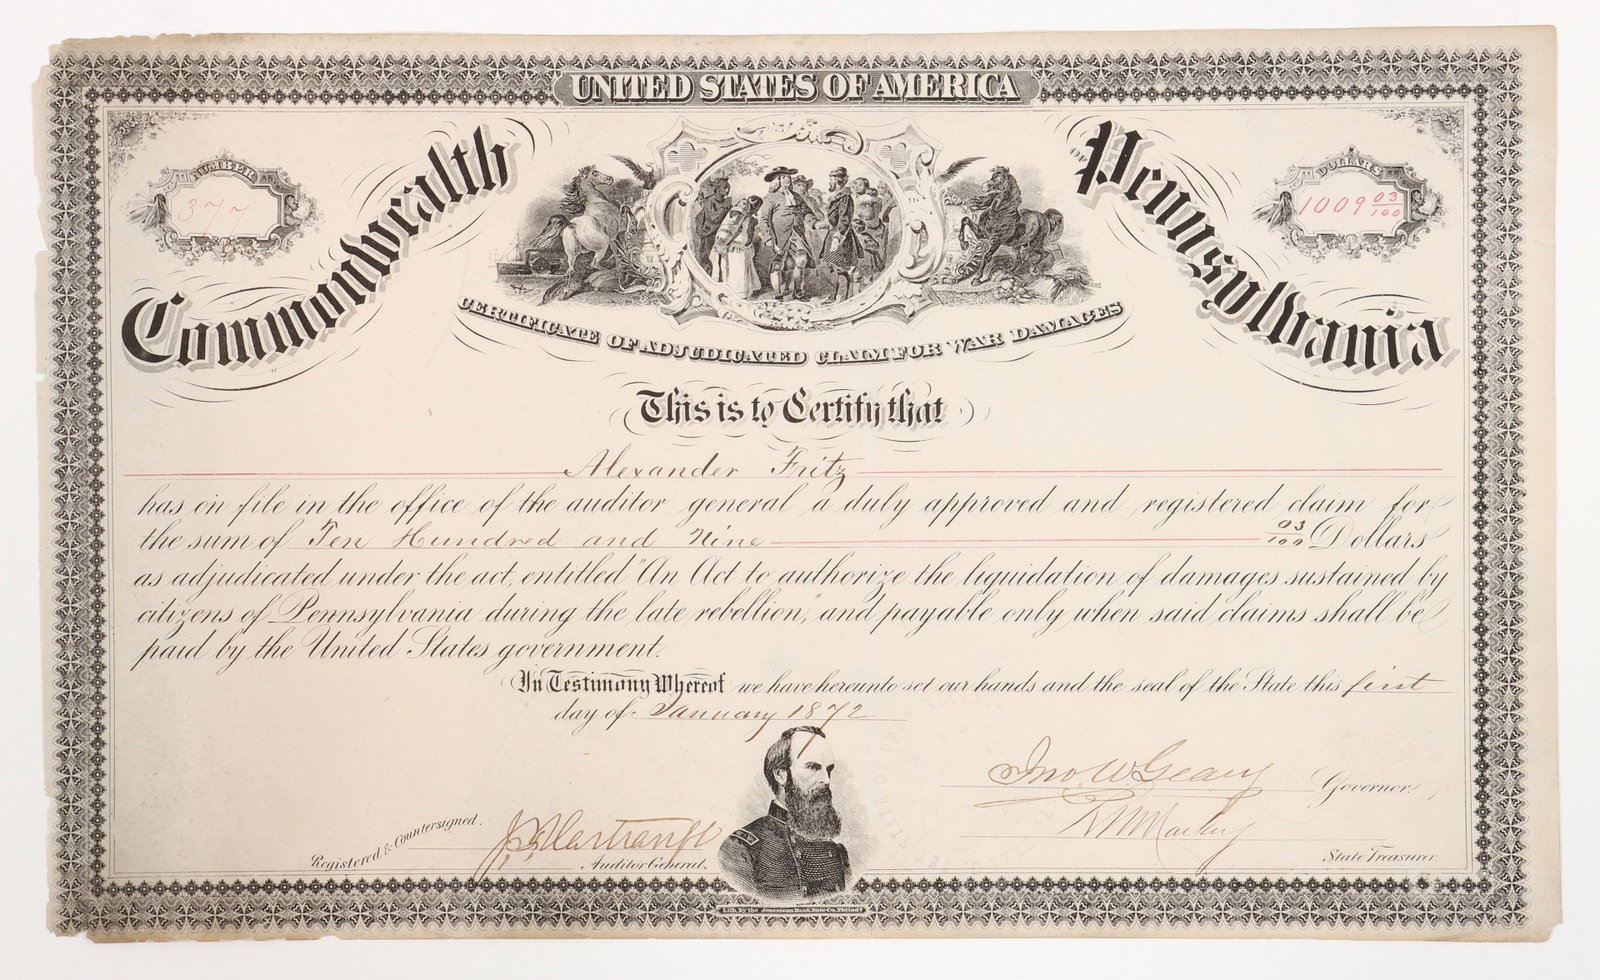 UNITED STATES OF AMERICA
Commonwealth OF Pennsylvania
NUMBER
377
DOLLARS
1009 03/100
CERTIFICATE OF ADJUDICATED CLAIM FOR WAR DAMAGES
This is to Certify that
Alexander Fritz
has on file in the office of the auditor general a duly approved and registered claim for
the sum of Ten Hundred and Nine 03/100 Dollars
as adjudicated under the act, entitled "An Act to authorize the liquidation of damages sustained by
citizens of Pennsylvania during the late rebellion," and payable only when said claims shall be
paid by the United States government.
In Testimony Whereof we have hereunto set our hands and the seal of the State this first
day of January 1872
Jno W Geary Governor
R W Mackey
State Treasurer
Registered & Countersigned.
J. F. Hartranft
Auditor General.
Lith. by the American Bank Note Co. Philada.